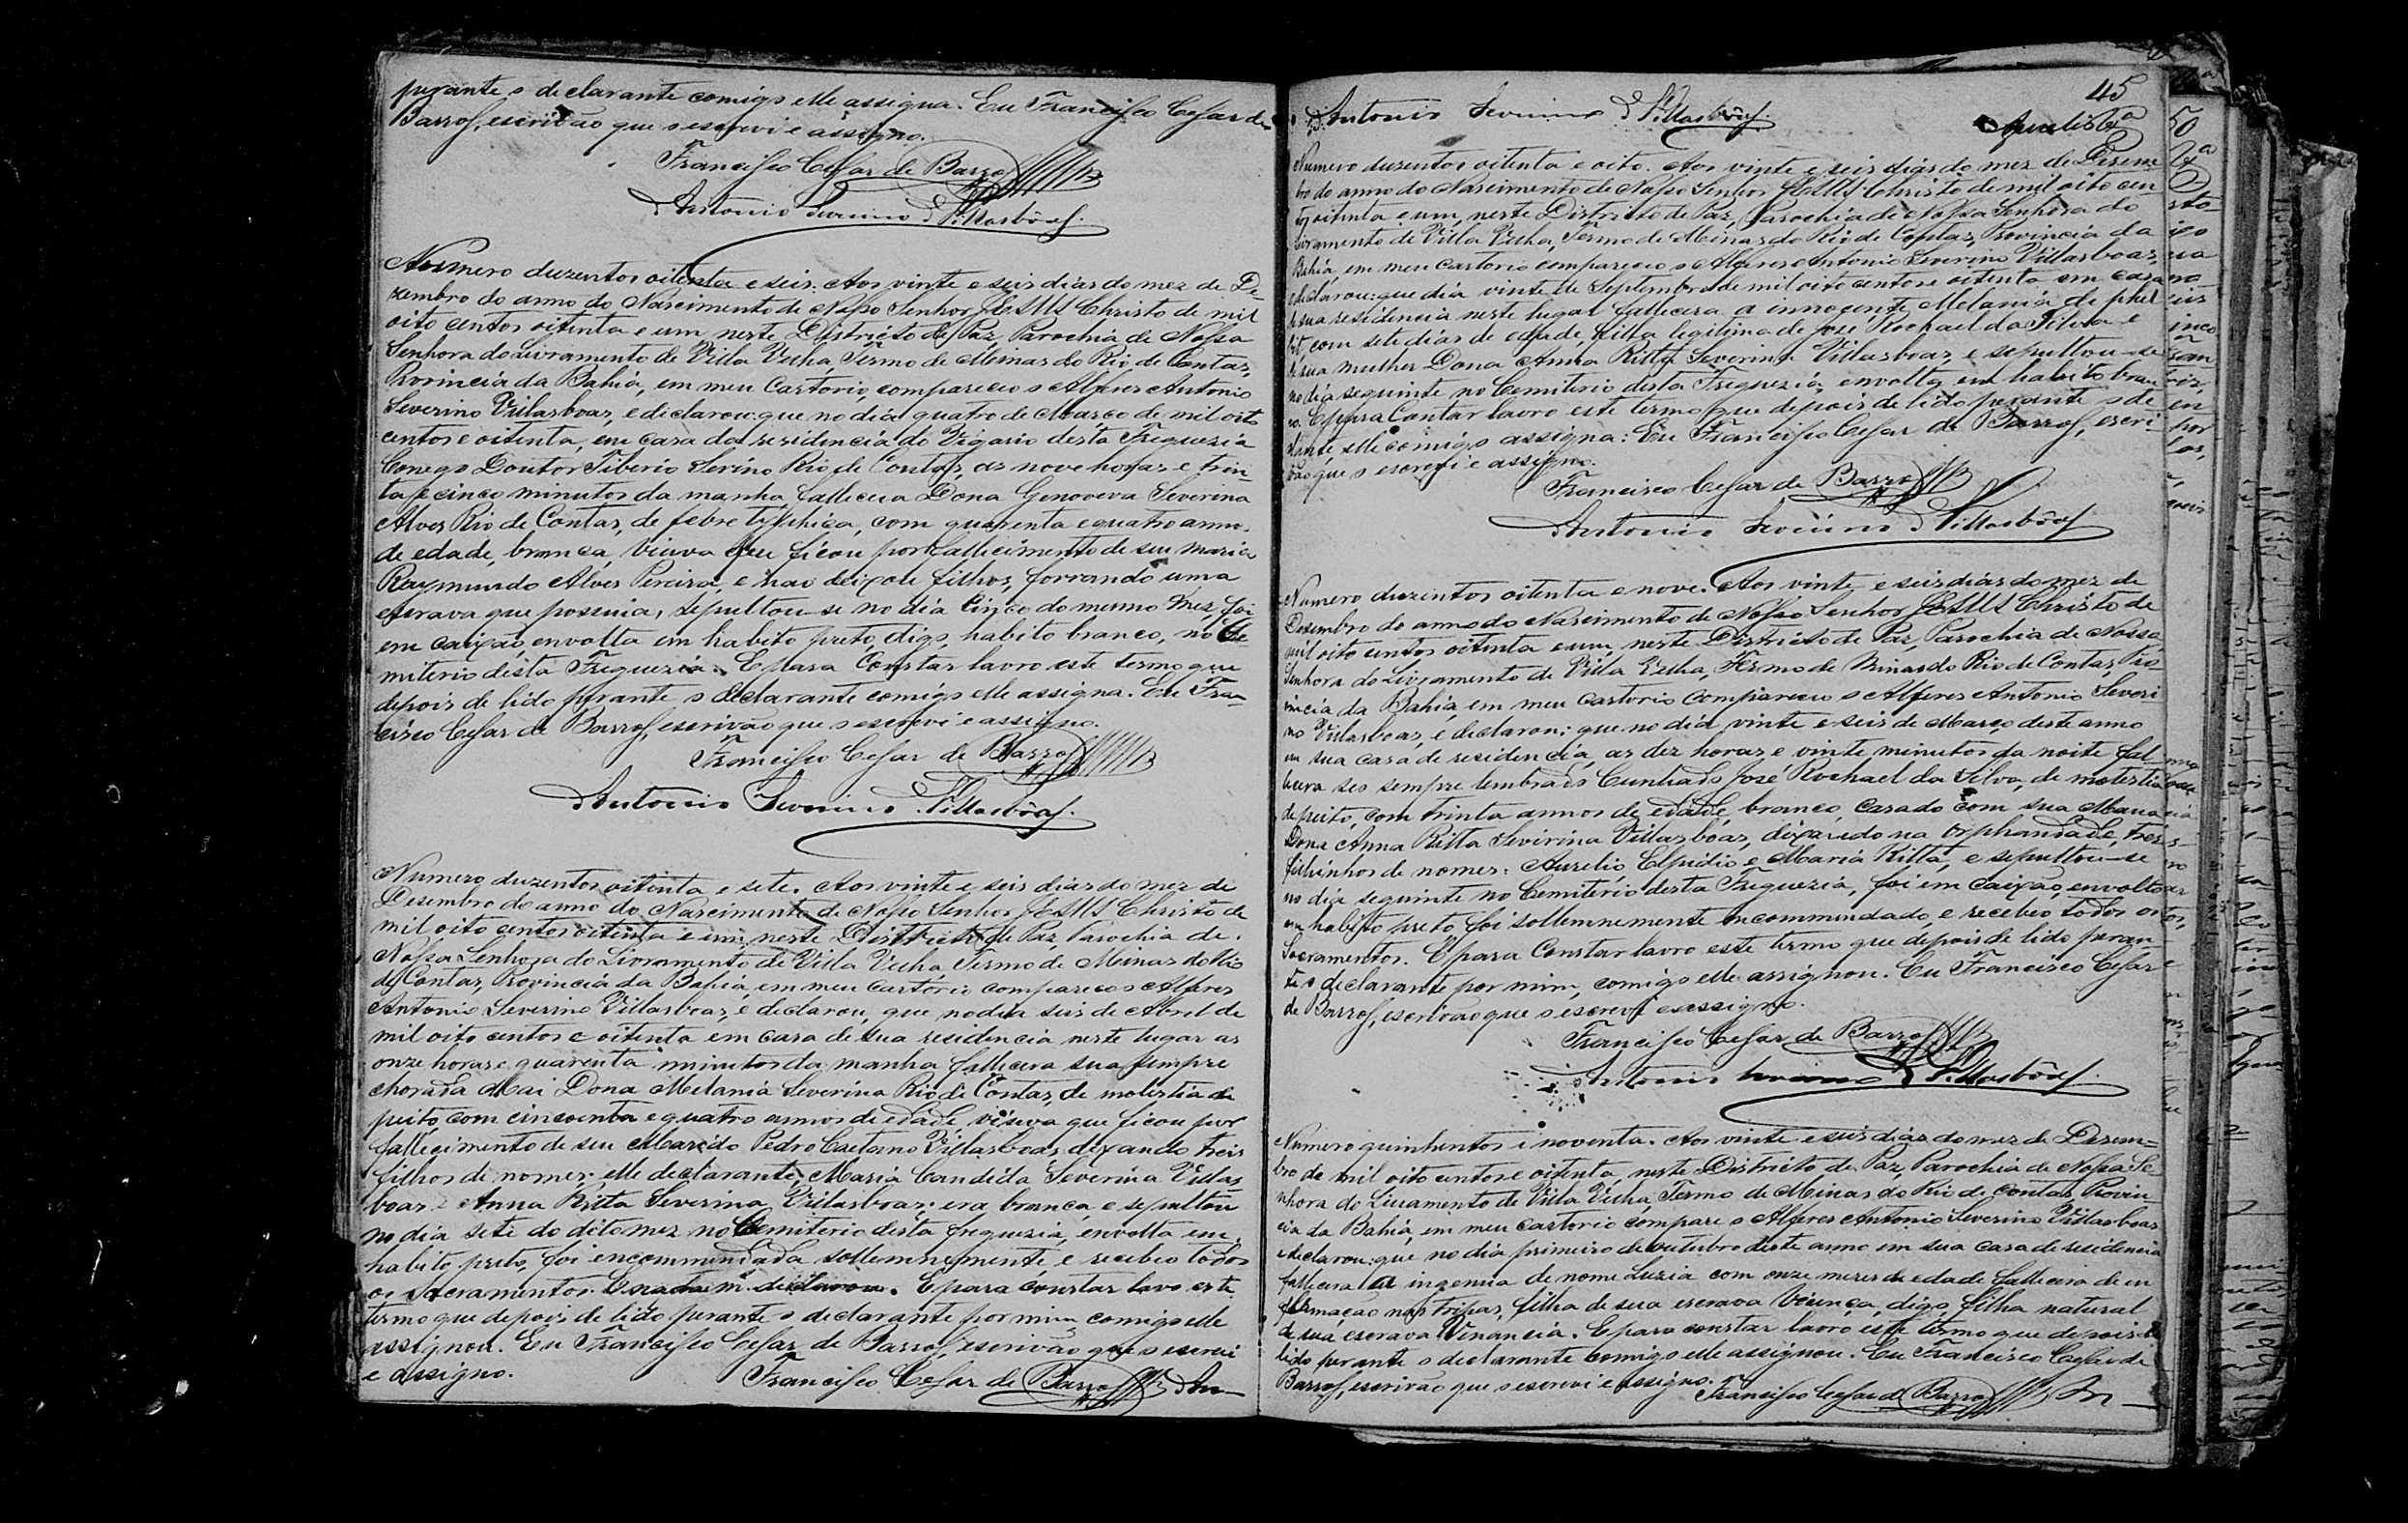 perante o declarante comigo elle assigna. Eu Francisco Cesar de
Barros, escrivão que o escrevi e assigno.
Francisco Cesar de Barros
Antonio Severino Villasbôas.
Numero duzentos oitenta e seis. Aos vinte e seis dias do mez de De-
zembro do anno do Nascimento de Nosso Senhor JESUS Christo de mil
oito centos oitenta e um neste Districto de Paz, Parochia de Nossa
Senhora do Livramento de Villa Velha, Termo de Minas do Rio de Contas,
Provincia da Bahia, em meu Cartorio, compareceo o Alferes Antonio
Severino Villasboas, e declarou: que no dia quatro de Março de mil oito
centos e oitenta, em casa da residencia do Vigario desta Freguezia
Conego Doutor Tiberio Severino Rio de Contas, as nove horas e trin-
ta e cinco minutos da manha, fallecera Dona Genoveva Severina
Alves Rio de Contas, de febre typhica, com quarenta e quatro annos
de edade, branca, viuva que ficou por fallecimento de seu marido
Raymundo Alves Pereira, e não deixou filhos, forrando uma
escrava que possuia, sepultou-se no dia cinco do mesmo mez, foi
em caixão, envolta em habito preto, digo, habito branco, no Ce-
miterio desta Freguezia. E para Constar lavro este termo que
depois de lido perante o declarante comigo elle assigna. Eu Fran-
cisco Cesar de Barros, escrivão que o escrevi e assigno.
Francisco Cesar de Barros
Antonio Severino Villasbôas.
Numero duzentos oitenta e sete. Aos vinte e seis dias do mez de
Desembro do anno do Nascimento de Nosso Senhor JESUS Christo de
mil oito centos oitenta e um, neste Districto de Paz, Parochia de
Nossa Senhora do Livramento de Villa Velha, Termo de Minas do Rio
de Contas, Provincia da Bahia, em meu cartorio compareceo o Alferes
Antonio Severino Villasboas, e declarou, que no dia seis de Abril de
mil oito centos e oitenta em casa de sua residencia neste lugar as
onze horas e quarenta minutos da manha fallecera sua sempre
chorada Mai Dona Melania Severina Rio de Contas, de molestia de
peito, com cincoenta e quatro annos de edade, viuva que ficou por
fallecimento de seu Marido Pedro Caetano Villasboas, deixando treis
filhos de nomes: elle declarante, Maria Candida Severina Villas
boas e Anna Ritta Severina Villasboas: era branca, e sepultou
no dia sete do dito mez no Cemiterio desta freguezia, envolta em
habito preto, foi encommendada sollemnemente e recebeo todos
os Sacramentos. E nada m. declarou. E para constar lavo este
termo que depois de lido perante o declarante por mim comigo elle
assignou. Eu Francisco Cesar de Barros, escrivão que o escrevi
e assigno.
Francisco Cesar de Barros An-
45
Antonio Severino Villasbôas.
Numero duzentos oitenta e oito. Aos vinte e seis dias do mez de Dezem
bro do anno do Nascimento de Nosso Senhor JESUS Christo de mil oito cen
tos oitenta e um, neste Districto de Paz, Parochia de Nossa Senhora do
Livramento de Villa Velha, Termo de Minas do Rio de Contas, Provincia da
Bahia, em meu cartorio compareceo o Alferes Antonio Severino Villasboas,
e declarou: que dia vinte de Septembro de mil oito centos e oitenta, em casa
de sua residencia neste lugar fallecera a innocente Melania de
com sete dias de edade, filha legitima de José Rochael da Silva e
de sua mulher Dona Anna Ritta Severina Villasboas, e sepultou-se
no dia seguinte no Cemiterio desta Freguezia, envolta em habito bran
co. E para Constar lavro este termo que depois de lido perante o de-
clarante elle comigo assigna: Eu Francisco Cesar de Barros, escri-
vão que o escrevi e assigno.
Francisco Cesar de Barros
Antonio Severino Villasbôas
Numero duzentos oitenta e nove. Aos vinte e seis dias do mez de
Desembro do anno do Nascimento de Nosso Senhor JESUS Christo de
mil oito centos oitenta e um, neste Districto de Paz, Parochia de Nossa
Senhora do Livramento de Villa Velha, Termo de Minas do Rio de Contas, Pro-
vincia da Bahia, em meu cartorio compareceo o Alferes Antonio Severi-
no Villasboas, e declarou: que no dia vinte e seis de Março deste anno
em sua casa de residencia, as dez horas e vinte minutos da noite fal
lecera seo sempre lembrado Cunhado José Rochael da Silva, de molestia
de peito, com trinta annos de edade, branco, casado com sua Mana
Dona Anna Ritta Severina Villasboas, deixando na orphandade, tres
filhinhos de nomes: Aurelio, Elpidio e Maria Ritta, e sepultou-se
no dia seguinte no Cemiterio desta Freguezia, foi em caixão, envolto
em habito preto, foi sollemnemente encommendado, e recebeo todos os
Sacramentos. E para Constar lavro este termo que depois de lido peran-
te o declarante por mim, comigo elle assignou. Eu Francisco Cesar
de Barros, escrivão que o escrevi e assigno.
Francisco Cesar de Barros
Antonio Severino Villasbôas.
Numero quinhentos i noventa. Aos vinte e seis dias do mez de Dezem-
bro de mil oito centos e oitenta, neste Districto de Paz, Parochia de Nossa Se-
nhora do Livramento de Villa Velha, Termo de Minas do Rio de Contas, Provin-
cia da Bahia, em meu cartorio compare o Alferes Antonio Severino Villasboas
e declarou: que no dia primeiro de outubro deste anno em sua casa de residencia
fallecera a ingenua de nome Luzia com onze mezes de edade fallecera de in
flamação nas tripas, filha de sua escrava Vicença, digo, filha natural
de sua escrava Venancia. E para constar lavro este termo que depois de
lido perante o declarante comigo elle assignou. Eu Francisco Cesar de
Barros, escrivão que o escrevi e assigno.
Francisco Cesar de Barros An-